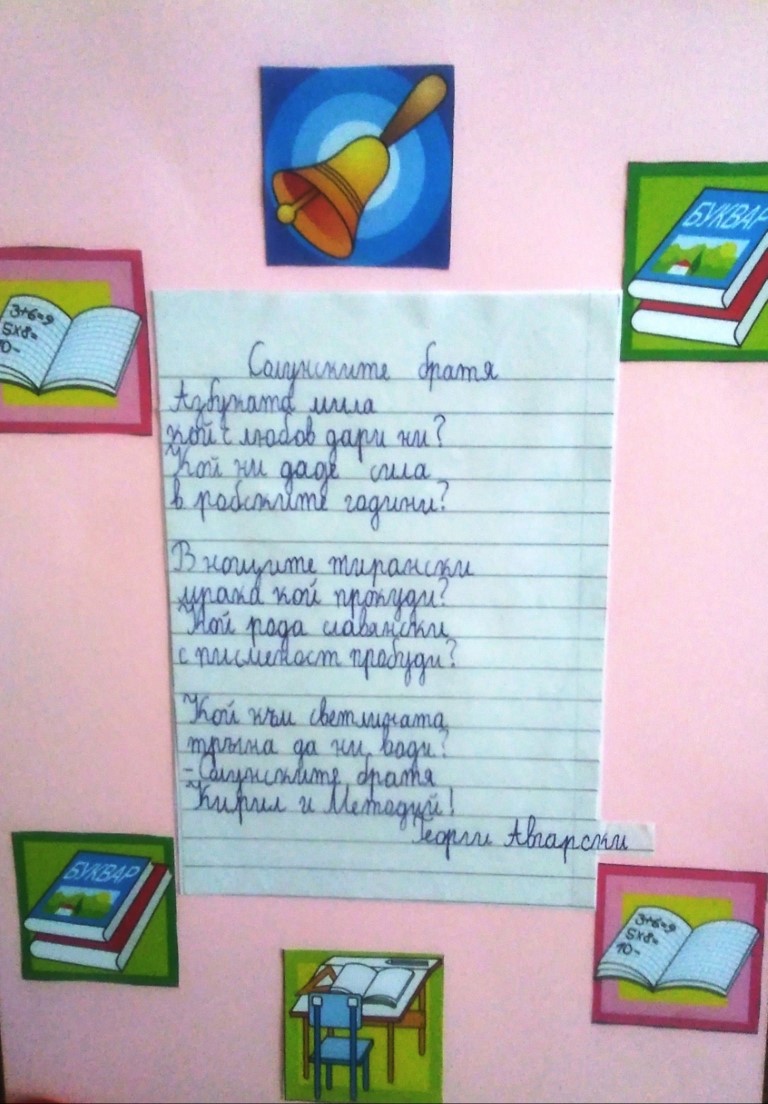 БУКВАР
3+6=9
5x8=
10-
Солунските братя
Азбуката мила
кой с любов дари ни?
Кой ни даде сила
в робските години?
В нощите тирански
мрака кой прокуди?
Кой рода славянски
с писменост пробуди?
Кой към светлината
тръгна да ни води?
- Солунските братя
Кирил и Методий!
Георги Авгарски
БУКВАР
3+6=9
5x8=
10-